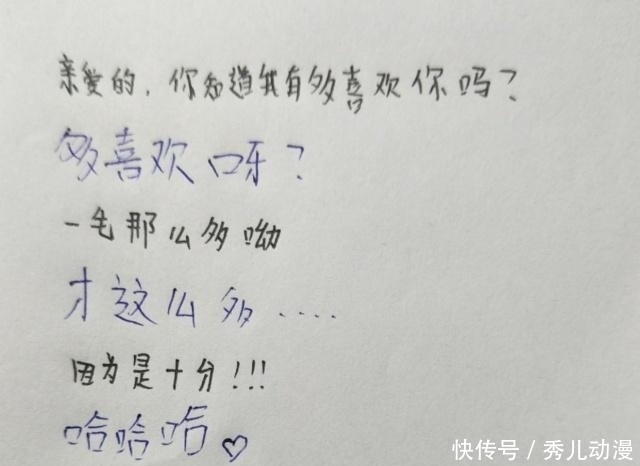 亲爱的，你知道我有多喜欢你吗？
多喜欢呀？
一毛那么多呦
才这么多....
因为是十分!!!
哈哈哈♡
快传号/秀儿动漫